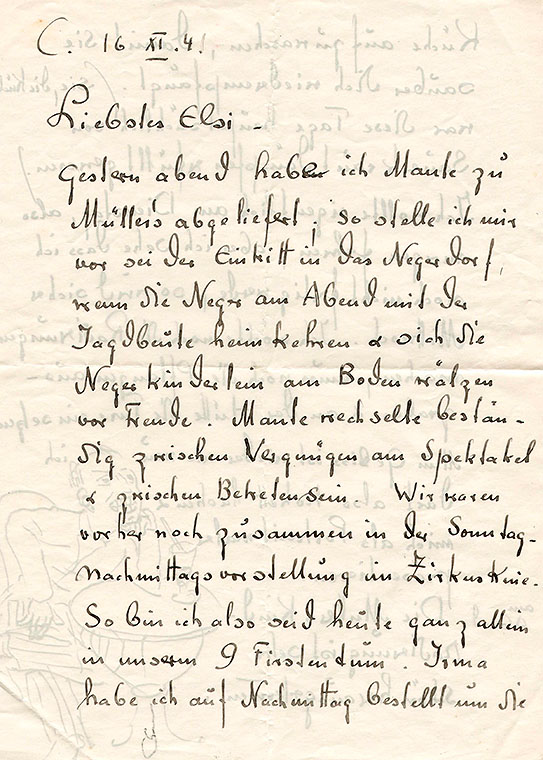 C. 16 XI. 4.
Liebstes Elsi -
Gestern abend habe ich Mante zu
Müllers abgeliefert; so stelle ich mir
vor sei der Eintritt in das Negerdorf,
wenn die Neger am Abend mit der
Jagdbeute heimkehren & sich die
Negerkinderlein am Boden wälzen
vor Freude. Mante wechselte bestän-
dig zwischen Vergnügen am Spektakel
& zwischen Betretensein. Wir waren
vorher noch zusammen in der Sonntag-
nachmittagsvorstellung im Zirkus Knie.
So bin ich also seid heute ganz allein
in unserm 9 Firstentum. Irma
habe ich auf Nachmittag bestellt um die